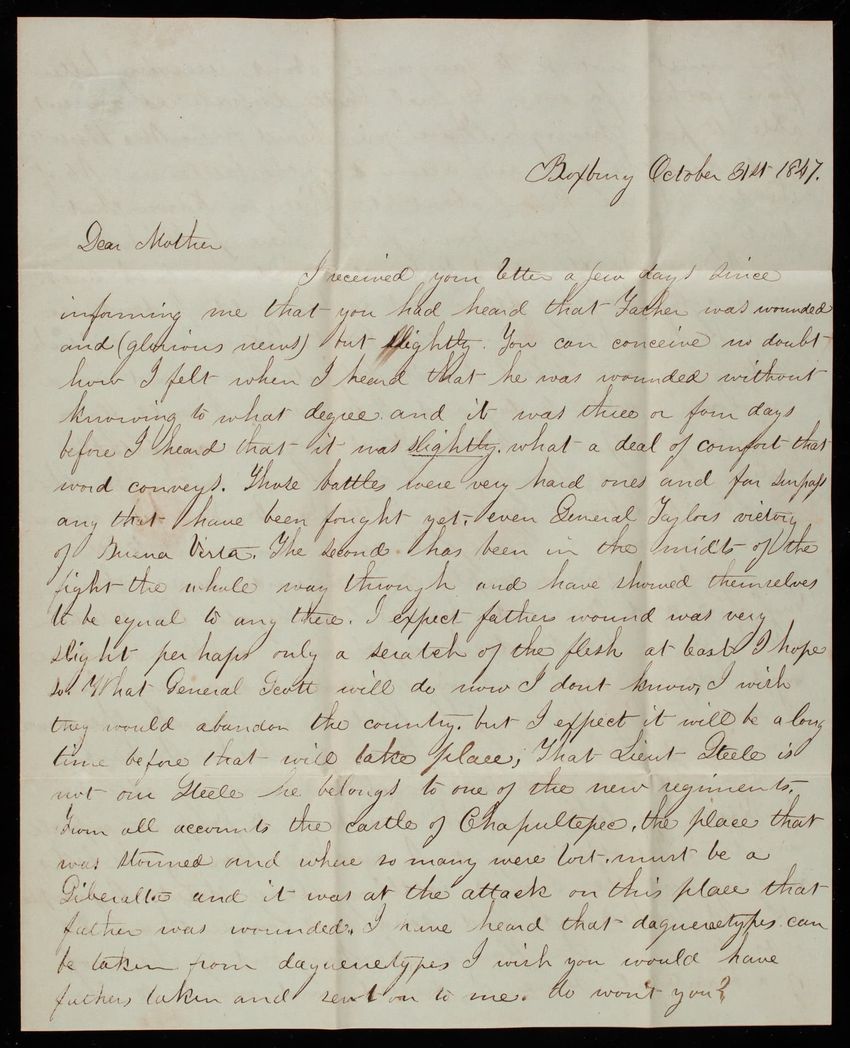 Roxbury October 31st 1847.
Dear Mother
I received your letter a few days since
informing me that you had heard that Father was wounded
and (glorious news) but slightly. You can conceive no doubt
how I felt when I heard that he was wounded without
knowing to what degree and it was three or four days
before I heard that it was slightly. what a deal of comfort that
word conveys. Those battles were very hard ones and far surpass
any that have been fought yet, even General Taylors victory
of Buena Vista. The second has been in the midts of the
fight the whole way through and have showed themselves
to be equal to any there. I expect fathers wound was very
slight perhaps only a scratch of the flesh at least I hope
so. What General Scott will do now I dont know, I wish
they would abandon the country. but I expect it will be a long
time before that will take place; That Lieut Steele is
not our Steele he belongs to one of the new regiments.
From all accounts the castle of Chapultepec, the place that
was stormed and where so many were lost. must be a
Giberalter and it was at the attack on this place that
father was wounded. I have heard that daguereetypes can
be taken from daguereetypes I wish you would have
fathers taken and sent on to me. do won't you?